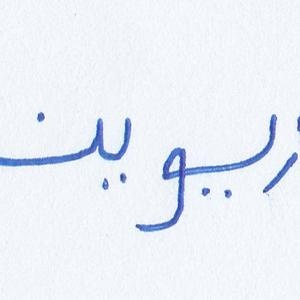 ريوين